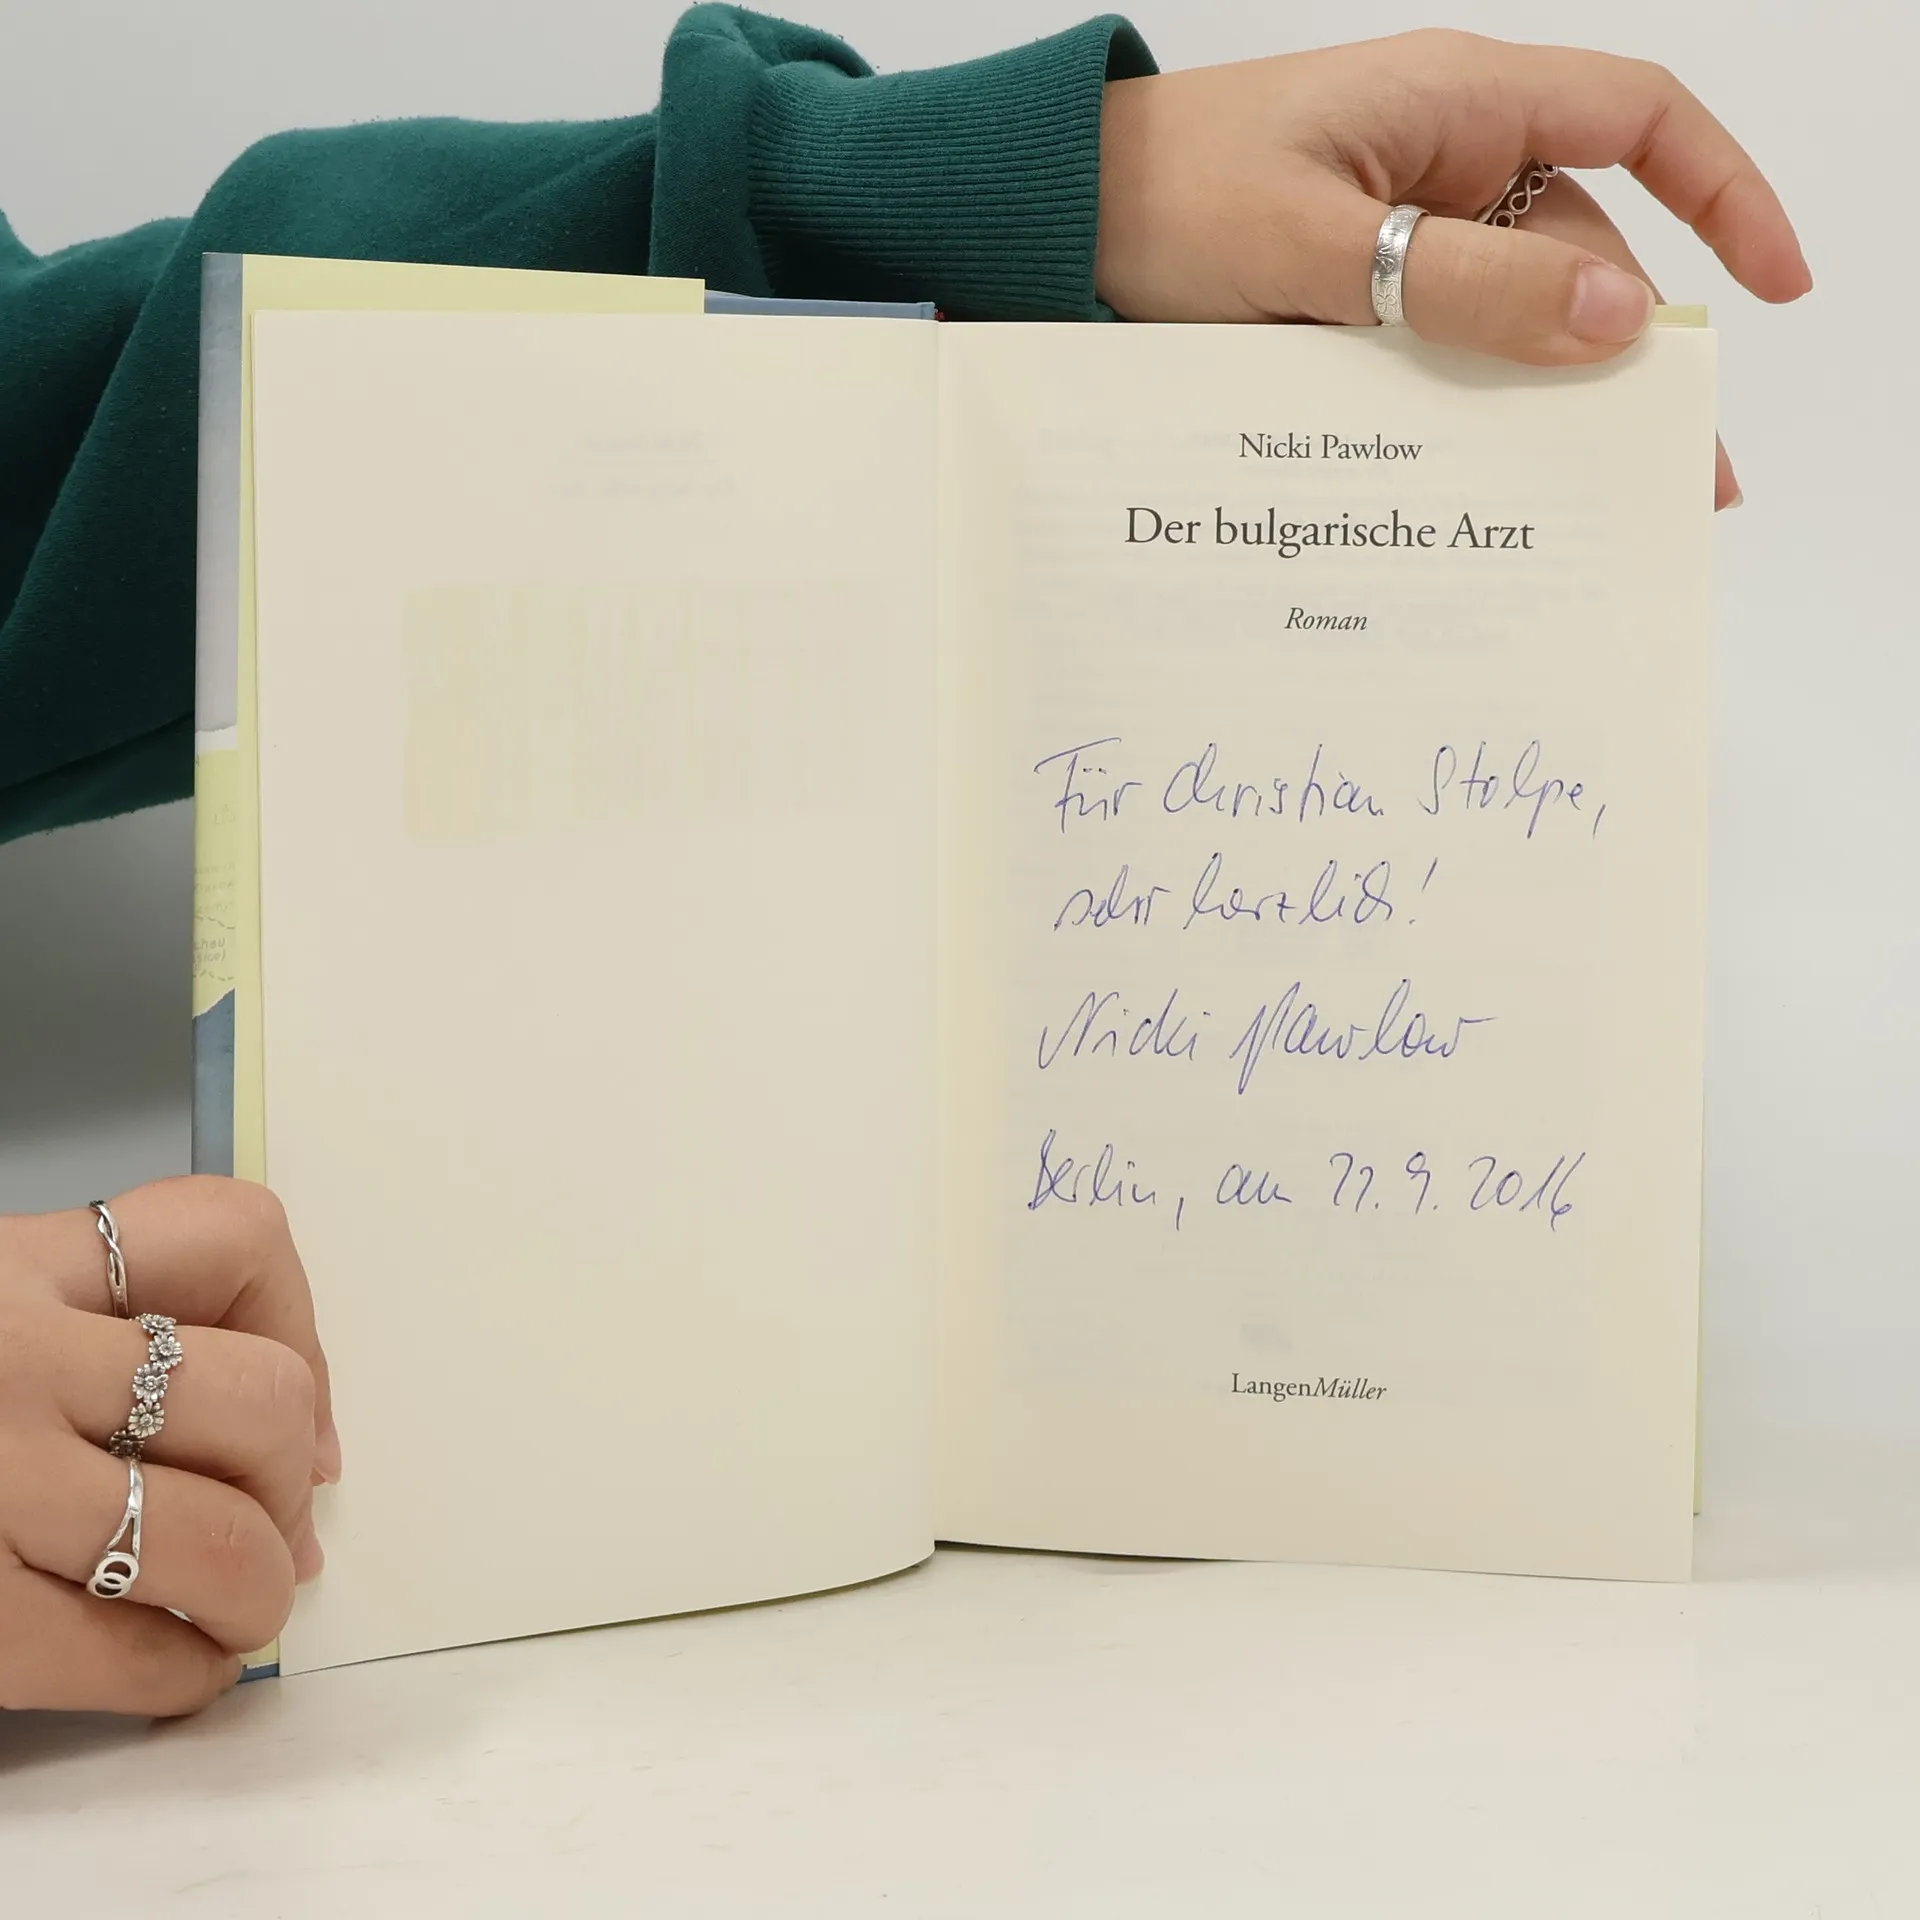 Nicki Pawlow
Der bulgarische Arzt
Roman
Für Christian Stolpe,
sehr herzlich!
Nicki Pawlow
Berlin, am 22. 9. 2016
LangenMüller